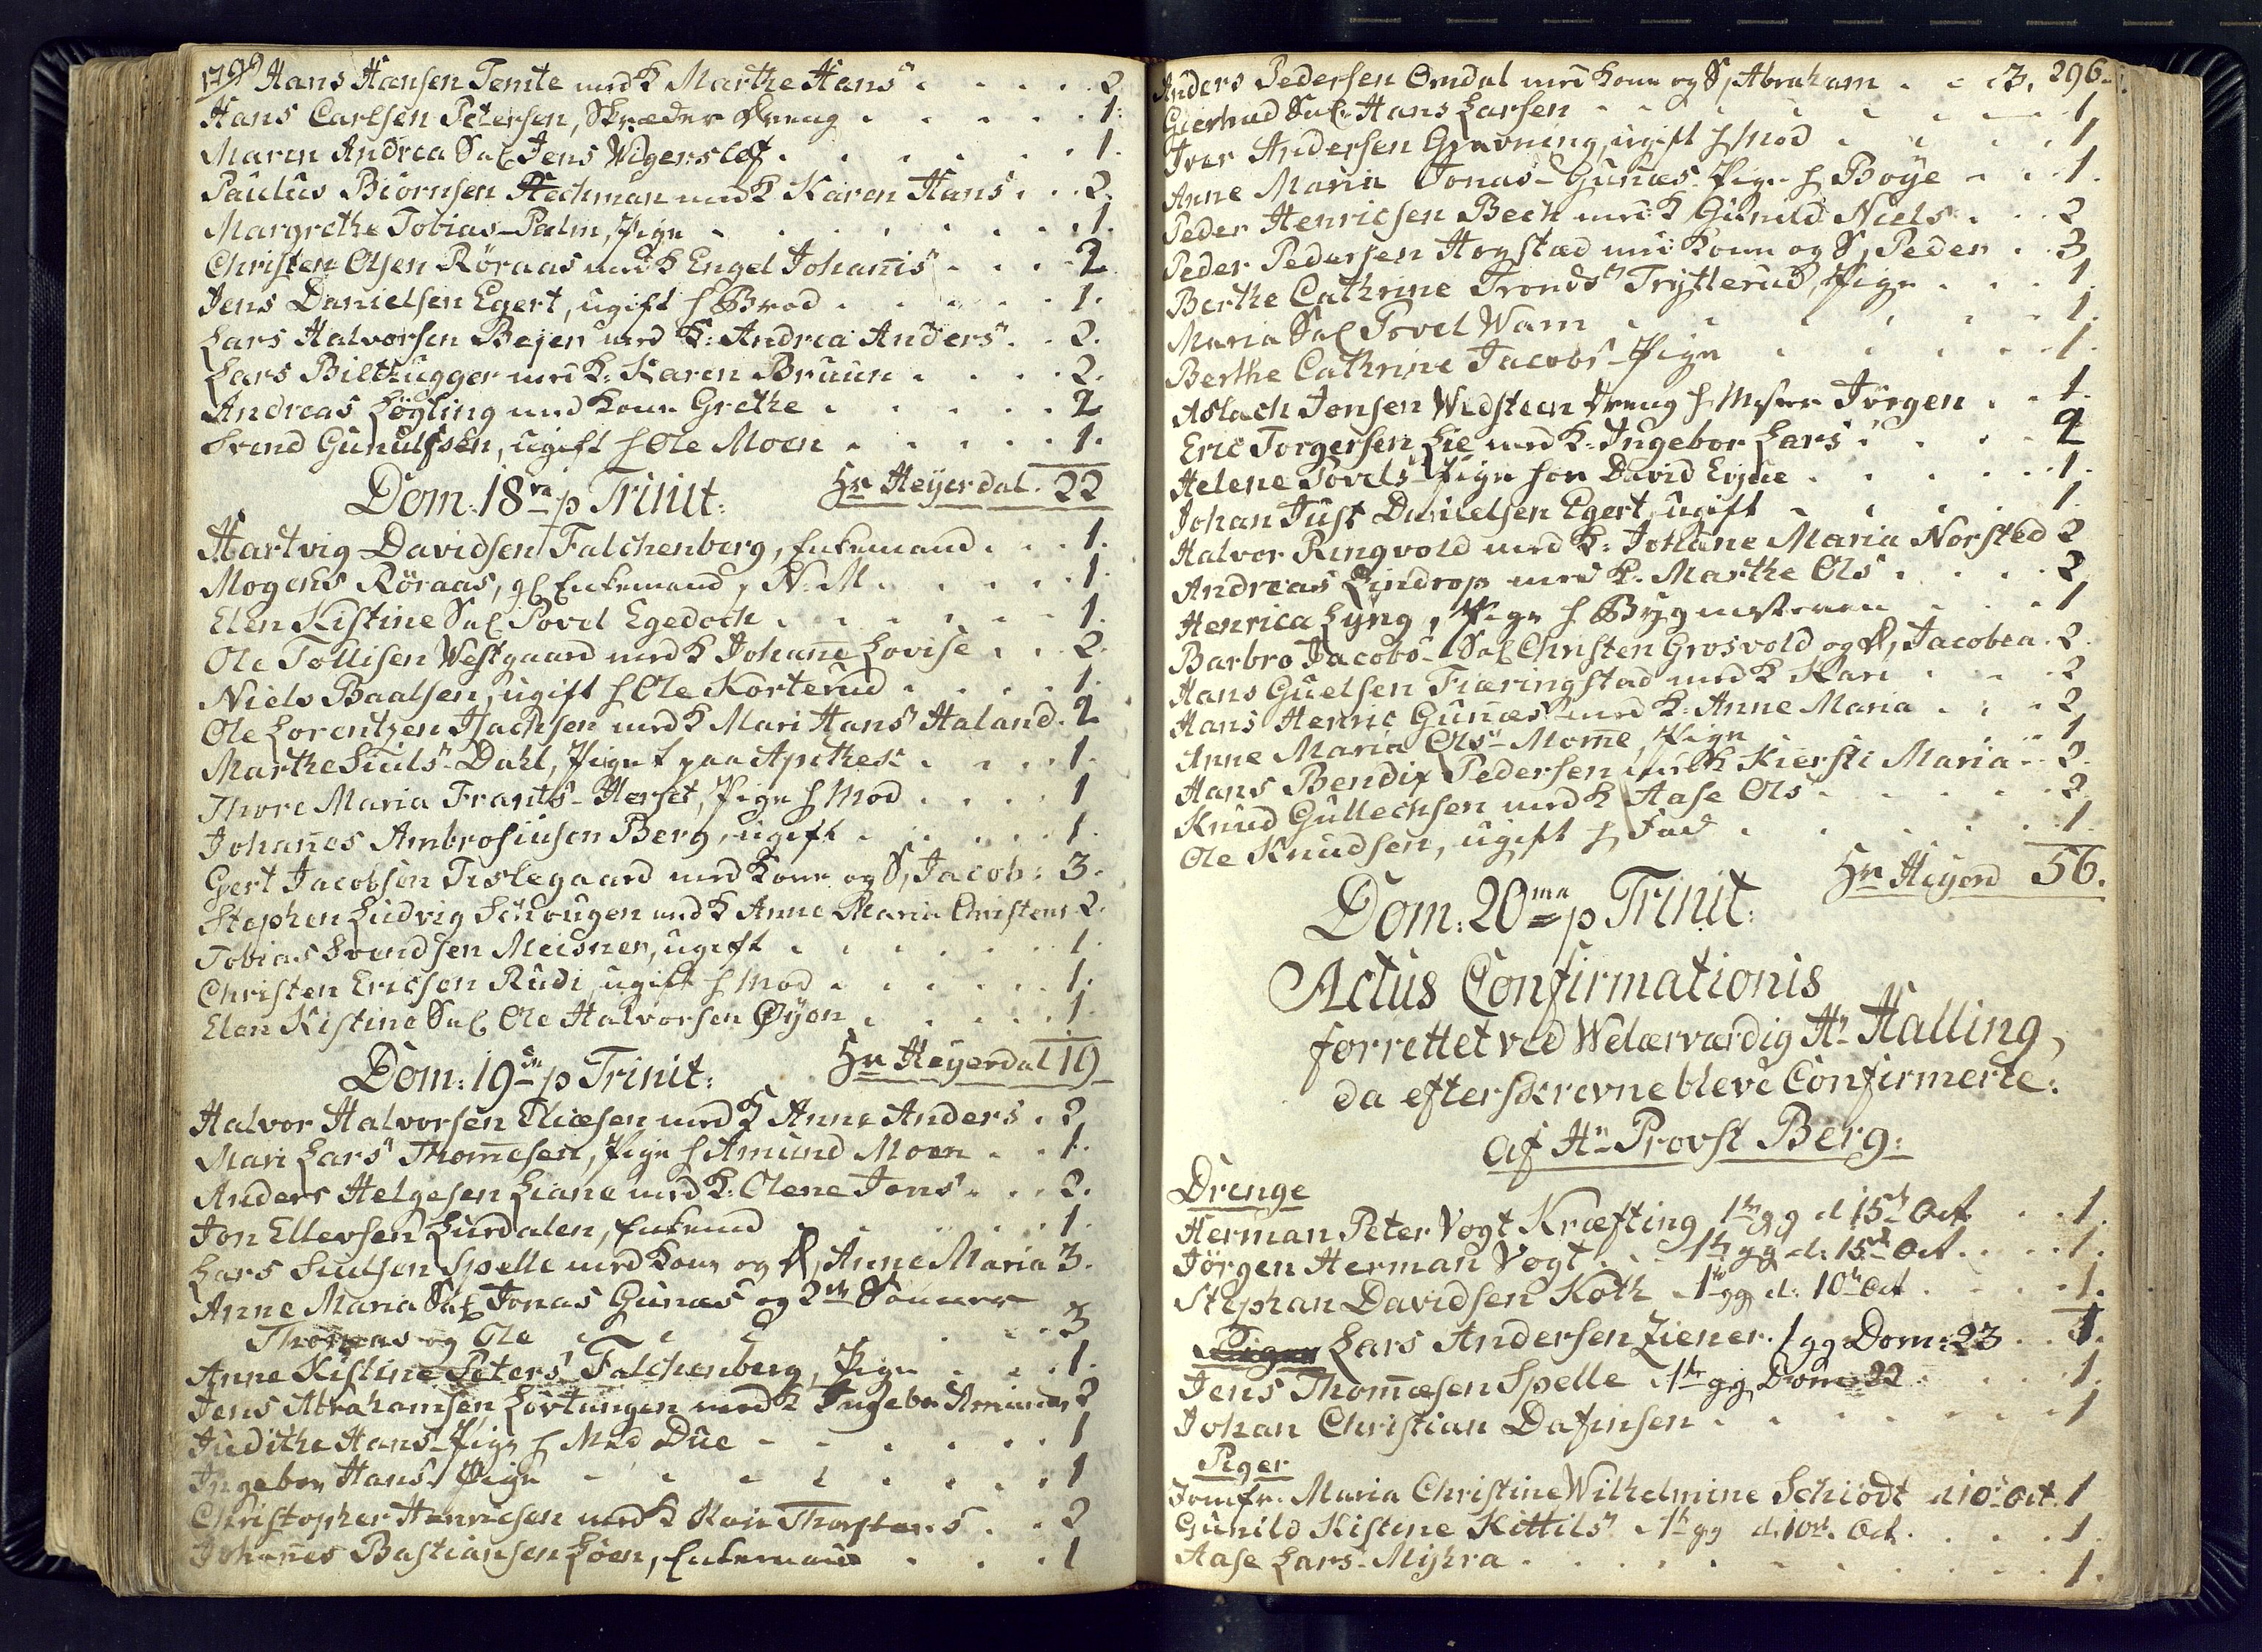 1799 Hans Hansen Temte med K Marthe Hans" . . . . 2
Hans Carlsen Petersen, Skræder Dreng . . . . . 1.
Maren Andrea Sal Jens Wigersløf . . . . . . 1.
Paulus Biørnsen Stechman med K Karen Hans" . . 2.
Margrethe Tobias- Palm, Pige . . . . . . . 1.
Christen Olsen Røraas med K Engel Johanis" . . . 2
Jens Danielsen Egert, ugift h Brod . . . . . 1.
Lars Halvorsen Bejer med K: Andrea Anders" . . 2.
Lars Bilthugger med K: Karen Bruun . . . . 2.
Andreas Løgling med Kone Grethe . . . . . 2
Svend Gunulfsen, ugift h Ole Moen . . . . . 1.
Dom: 18va p Trinit: Hr Heyerdal. 22
Hartvig Davidsen Falchenberg, Enkemand . . . 1.
Mogens Røraas, gl Enkemand, N: M . . . . . 1.
Elen Kistine Sal Povel Egedoch . . . . . . 1.
Ole Tollisen Westgaard med K Johanne Lovise . . 2.
Niels Baalsen, ugift h Ole Korterud . . . . . 1.
Ole Lorentzen Isachsen med K Mari Hans" Haland. 2
Marthe Siuls" Dahl, Pige paa Apothek . . . . 1.
Thore Maria Frants- Herset, Pige h Mod . . . . 1
Johannes Ambrosiusen Berg, ugift . . . . . . 1.
Gert Jacobsen Tislegaard med Kone og S, Jacob: 3.
Stephen Ludvig Schougen med K Anne Maria Christens 2.
Tobias Svendsen Meisner, ugift . . . . . . 1.
Christen Ericsen Rudi, ugift h Mod . . . . . 1.
Elen Kistine Sal. Ole Halvorsen Øyen . . . . . 1
Dom: 19de p Trinit: Hr Heyerdal 19
Halvor Halvorsen Eliæsen med K Anne Anders . 2
Mari Lars" Thomesen, Pige h Amund Moen . . 1.
Anders Helgesen Liane med K: Olene Jens" . . 2.
Jon Ellevsen Lurdalen, Enkemd . . . . . . 1.
Lars Siulsen Spelle med Kone og D, Anne Maria 3.
Anne Maria Sal Jonas Gunæs og 2de Sønner
Thomas og Ole . . . . . . . 3
Anne Kistine Peters" Falchenberg, Pige . . . 1.
Jens Abrahamsen Lortungen med K Ingebor Amunds 2
Judithe Hans" Pige h Md Due . . . . . . 1
Ingebor Hans" Pige . . . . . . . . 1
Christopher Henricsen med K Kari Thorstens . . 2
Johannes Bastiansen Løen, Enkemand . . . 1
Anders Pedersen Omdal med Kone og S, Abraham . . 3. 296.
Gierhud Sal. Hans Larsen . . . . . . 1
Iver Andersen Gravning, ugift h Mod . . . . 1
Anne Maria Jonas- Gunæs- Pige h Boÿe . . . 1.
Peder Henricsen Bech med K Gunild Niels . . . 2
Peder Pedersen Hogstad med Kone og S, Peder . . 3
Berthe Cathrine Tronds" Trytlerud, Pige . . . 1.
Maria Sal Povel Wam . . . . . . 1.
Berthe Cathrine Jacobs- Pige . . . . . 1.
Aslach Jensen Wedsteen Dreng h Mester Jørgen . . 1.
Eric Torgersen Lie med K: Ingebor Lars" . . . 2
Helene Povels" Pige hos David Evjue . . . . . 1.
Johan Just Danielsen Egert, ugift . . . . . 1.
Halvor Ringvold med K: Johane Maria Norsted 2
Andreas Lindrop med K. Marthe Ols . . . . 2
Henrica Lyng, Pige h Bygmesteren . . . 1
Barbro Jacobs- Sal Christen Grosvold og D, Jacobea. 2.
Hans Guelsen Fiæringstad med K Kari . . . 2
Hans Henric Gunæs" med K: Anne Maria . . . 2
Anne Maria Ols" Mome, Pige . . . . 1
Hans Bendix Pedersen med K Kiersti Maria . . 2.
Knud Gullechsen med K Aase Ols" . . . . . 2.
Ole Knudsen, ugift h Fad . . . . . . . 1.
Hr Heyerd 56.
Dom: 20me p Trinit:
Actus Confirmationis
forrettet ved Welærværdig Hr Halling,
da efterskrevne bleve Confirmerte:
af Hr Provst Berg:
Drenge
Herman Peter Vogt Kræfting 1te gg d 15de Oct . . 1.
Jørgen Herman Vogt . . 1te gg d: 15de Oct . . . . 1.
Stephan Davidsen Koth 1te gg d: 10de Oct . . . . 1.
Piger Lars Andersen Ziener. 1 gg Dom: 23 . . 1.
Jens Thomæsen Spelle 1te gg Dom 22 . . . . 1.
Johan Christian Dafinsen . . . . . . . 1
Piger
Jomfr. Maria Christine Wilhelmine Schiødt d 10de Oct. 1
Gunild Kistine Kittils" 1te gg d. 10de Oct . . . . 1.
Aase Lars- Myhra . . . . . . . . 1.